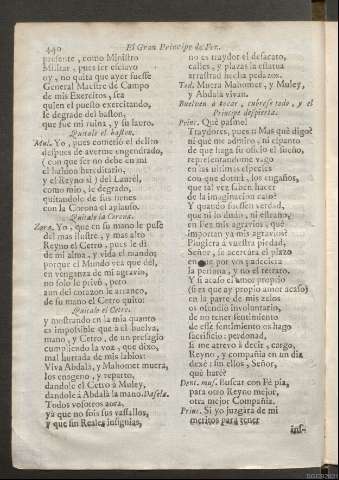 440
El Gran Principe de Fez.
presente, como Ministro
Militar, pues ser esclavo
oy, no quita que ayer fuesse
General Maestre de Campo
de mis Exercitos, sea
quien el puesto exercitando,
le degrade del baston,
que fue mi ruina, y su lauro.
Quitale el baston.
Mul. Yo, pues cometiò el destino
despues de averme engendrado,
(con que ser no debe en mi
el habito hereditario)
y el Reyno si) del Laurel,
como mio, le degrado,
quitandole de sus sienes
con la Corona el aplauso.
Quitale la Corona.
Zara. Yo, que en su mano le puse
del mas ilustre, y mas alto
Reyno el Cetro, pues le di
de mi alma, y vida el mando;
porque el Mundo vea que del,
en venganza de mi agravio,
no solo le privò, pero
aun del corazon le arranco,
de su mano el Cetro quito:
Quitale el Cetro.
y mostrando en la mia quanto
es impossible que à el buelva,
mano, y Cetro, de un presagio
cumpliendo la voz, que dixo,
mal hurtada de mis labios:
Viva Abdalà, y Mahomet muera,
los enageno, y reparto,
dandole el Cetro à Muley,
dandole à Abdalà la mano. Dasela.
Todos vosotros aora,
ya que no sois sus vassallos,
y que sin Reales insignias,
no es traydor el desacato,
calles, y plazas la estatua
arrastrad hecha pedazos.
Tod. Muera Mahomet, y Muley,
y Abdalà vivan.
Buelven à tocar, cubrese todo, y el
Principe despierta.
Princ. Què pasmo!
Traydores, pues::: Mas què digo?
ni que me admiro, ni espanto
de que haga su oficio el sueño,
representandome vago
en las ultimas especies
con que dormì, los engaños,
que tal vez saben hacer
de la imaginacion caso?
Y quando fuessen verdad,
que ni lo dudo, ni estraño,
en Fez mis agravios, què
importan ya mis agravios?
Pluguiera à vuestra piedad,
Señor, se acercàra el plazo
que por vos padeciera
la persona, y no el retrato.
Y si acaso el amor proprio
(si es que ay proprio amor acaso)
en la parte de mis zelos
os ofendiò involuntario,
de no tener sentimiento
de esse sentimiento os hago
sacrificio: perdonad,
si me atrevo à decir, cargo,
Reyno, y compañia en un dia
dexè: sin ellos, Señor,
què harè?
Dent. mus. Buscar con Fè pia,
para otro Reyno mejor,
otra mejor Compañia.
Princ. Si yo juzgàra de mi
meritos para tener
ins-